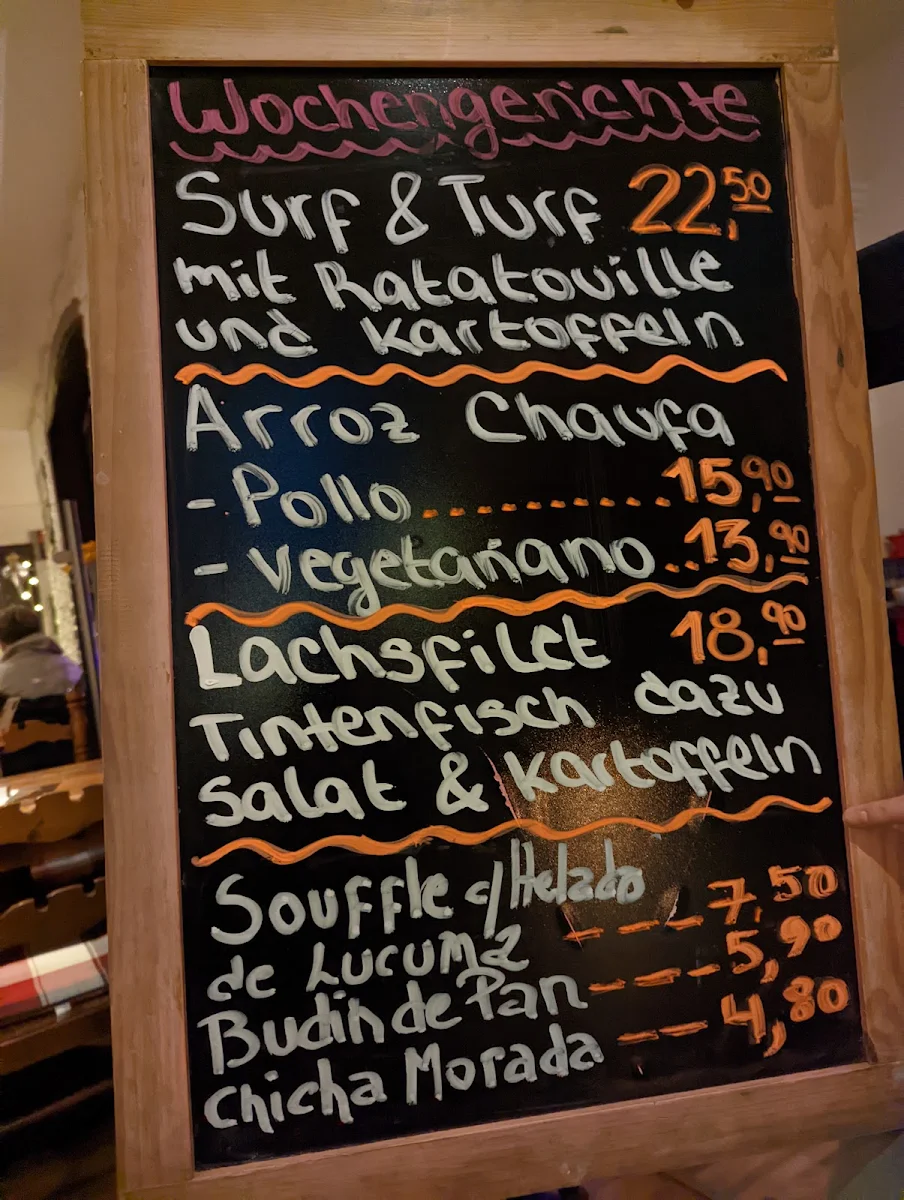 Wochengerichte
Surf & Turf 22,50
mit Ratatouille
und Kartoffeln
Arroz Chaufa
- Pollo.............15,90
- Vegetariano..13,90
Lachsfilet 18,90
Tintenfisch dazu
Salat & Kartoffeln
Souffle c/Helado
de Lucuma --- 7,50
Budin de Pan --- 5,90
Chicha Morada --- 4,80